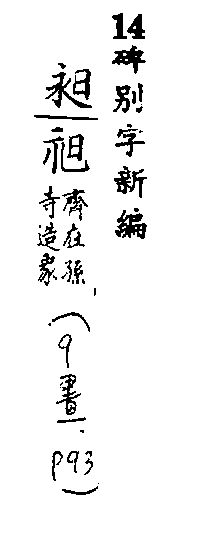 14碑別字新編
昶
齊在孫
寺造象
(9畫.p93)